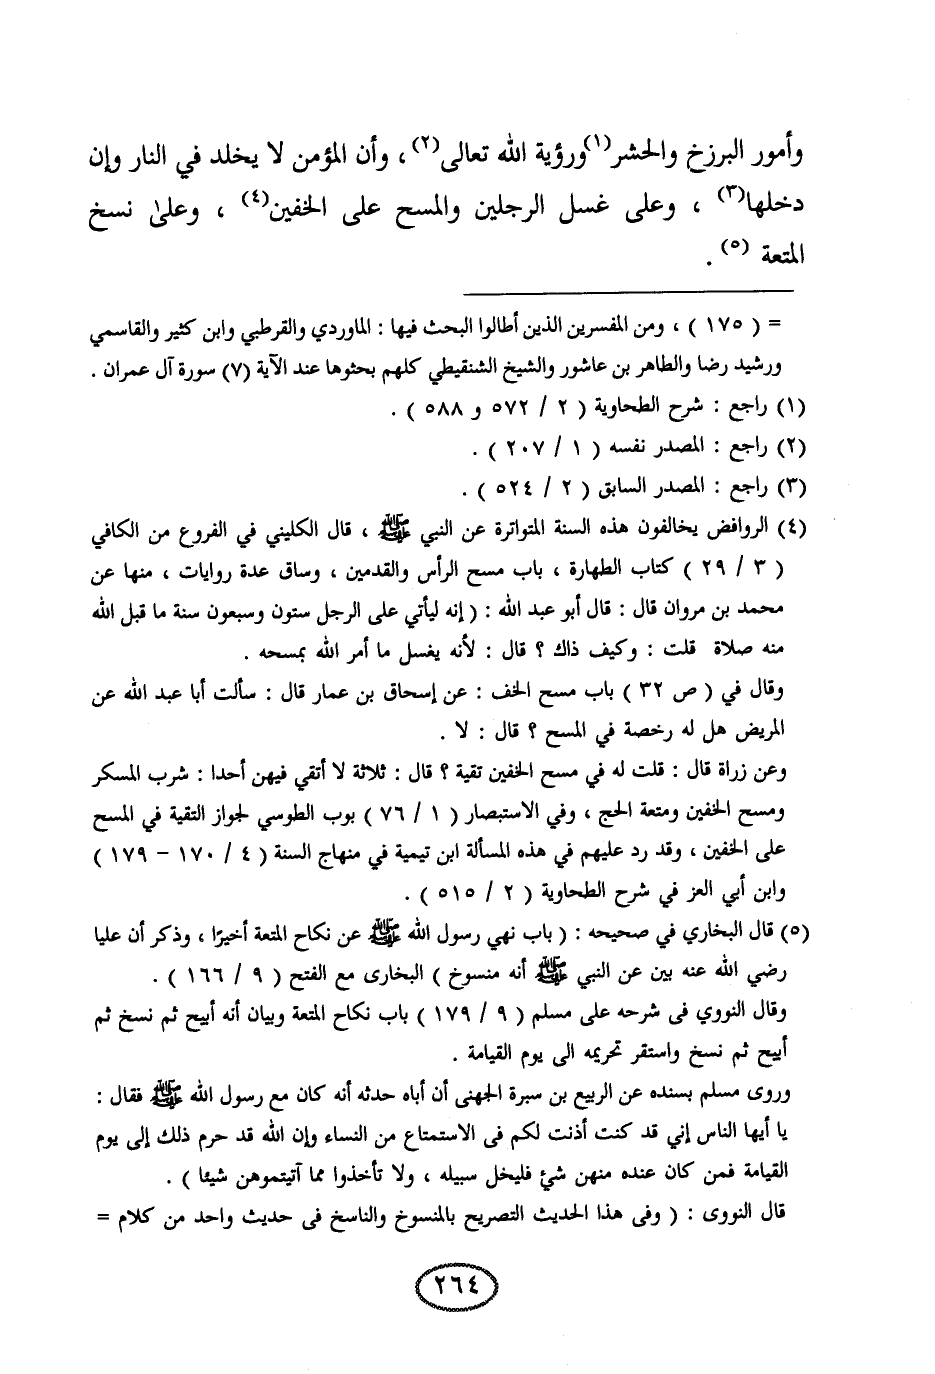 وأمور البرزخ والحشر(١)ورؤية الله تعالى(٢) ، وأن المؤمن لا يخلد في النار وإن
دخلها(٣) ، وعلى غسل الرجلين والمسح على الخفين(٤) ، وعلىٰ نسخ
المتعة (٥) .
= ( ١٧٥ ) ، ومن المفسرين الذين أطالوا البحث فيها : الماوردي والقرطبي وابن كثير والقاسمي
ورشيد رضا والطاهر بن عاشور والشيخ الشنقيطي كلهم بحثوها عند الآية (٧) سورة آل عمران .
(١) راجع : شرح الطحاوية ( ٢ / ٥٧٢ و ٥٨٨ ) .
(٢) راجع : المصدر نفسه ( ١ / ٢٠٧ ) .
(٣) راجع : المصدر السابق ( ٢ / ٥٢٤ ) .
(٤) الروافض يخالفون هذه السنة المتواترة عن النبي ﷺ ، قال الكليني في الفروع من الكافي
( ٣ / ٢٩ ) كتاب الطهارة ، باب مسح الرأس والقدمين ، وساق عدة روايات ، منها عن
محمد بن مروان قال : قال أبو عبد الله : ( إنه ليأتي على الرجل ستون وسبعون سنة ما قبل الله
منه صلاة قلت : وكيف ذاك ؟ قال : لأنه يغسل ما أمر الله بمسحه .
وقال في ( ص ٣٢ ) باب مسح الخف : عن إسحاق بن عمار قال : سألت أبا عبد الله عن
المريض هل له رخصة في المسح ؟ قال : لا .
وعن زراة قال : قلت له في مسح الخفين تقية ؟ قال : ثلاثة لا أتقي فيهن أحدا : شرب المسكر
ومسح الخفين ومتعة الحج ، وفي الاستبصار ( ١ / ٧٦ ) بوب الطوسي لجواز التقية في المسح
على الخفين ، وقد رد عليهم في هذه المسألة ابن تيمية في منهاج السنة ( ٤ / ١٧٠ – ١٧٩ )
وابن أبي العز في شرح الطحاوية ( ٢ / ٥١٥ ) .
(٥) قال البخاري في صحيحه : ( باب نهي رسول الله ﷺ عن نكاح المتعة أخيرًا ، وذكر أن عليا
رضي الله عنه بين عن النبي ﷺ أنه منسوخ ) البخارى مع الفتح ( ٩ / ١٦٦ ) .
وقال النووي فى شرحه على مسلم ( ٩ / ١٧٩ ) باب نكاح المتعة وبيان أنه أبيح ثم نسخ ثم
أبيح ثم نسخ واستقر تحريمه الى يوم القيامة .
وروى مسلم بسنده عن الربيع بن سبرة الجهنى أن أباه حدثه أنه كان مع رسول الله ﷺ فقال :
يا أيها الناس إني قد كنت أذنت لكم فى الاستمتاع من النساء وإن الله قد حرم ذلك إلى يوم
القيامة فمن كان عنده منهن شئ فليخل سبيله ، ولا تأخذوا مما آتيتموهن شيئا ) .
قال النووى : ( وفى هذا الحديث التصريح بالمنسوخ والناسخ فى حديث واحد من كلام =
٢٦٤